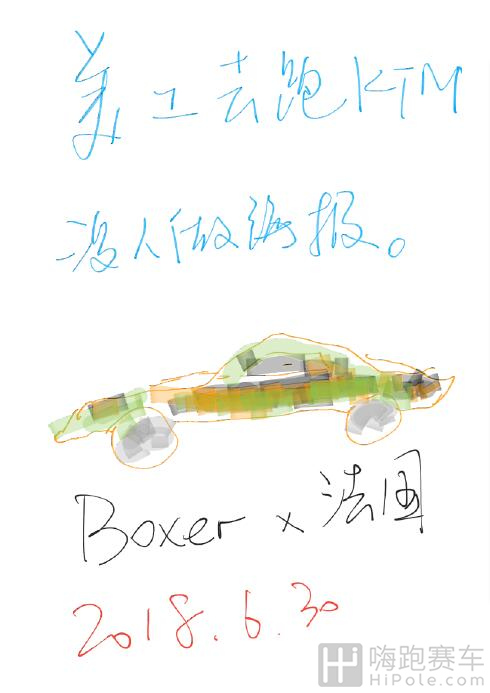 美工去跑KTM
没人做海报。
Boxer x 法国
2018.6.30
Hi 嗨跑赛车
HiPole.com